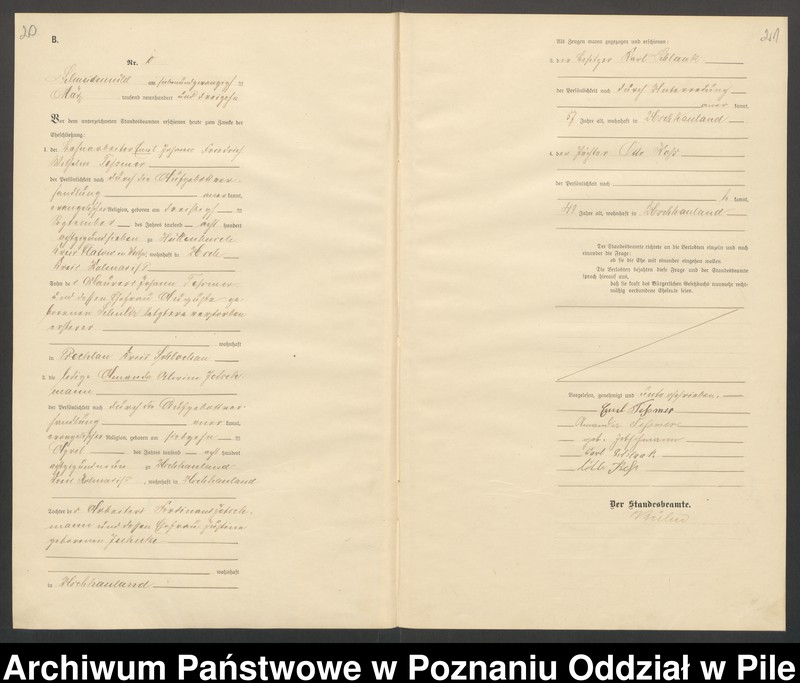 20
B.
Nr. 8
Schneidemühl am siebenundzwanzigsten
März tausend neunhundert und dreizehn
Vor dem unterzeichneten Standesbeamten erschienen heute zum Zwecke der
Eheschließung:
1. der Bahnarbeiter Emil Johann Friedrich
Wilhelm Teßmer
der Persönlichkeit nach durch die Aufgebotsver-
handlung anerkannt,
evangelischer Religion, geboren am dreißigsten
September des Jahres tausend acht hundert
achtzigundsieben zu
Kreis Flatow, wohnhaft in
Kreis Kolmar i/P
Sohn des Maurers Johann Teßmer
und dessen Ehefrau Auguste ge-
borenen Schulz letztere verstorben
ersterer
wohnhaft
in Prechlau Kreis Schlochau
2. die ledige Amanda
mann
der Persönlichkeit nach durch die Aufgebotsver-
handlung anerkannt,
evangelischer Religion, geboren am siebzehnten
April des Jahres tausend acht hundert
achtzigundneun zu Hochhauland
Kreis Kolmar i/P, wohnhaft in Hochhauland
Tochter des Arbeiters Ferdinand
mann und dessen Ehefrau Justine
geborenen
wohnhaft
in Hochhauland
21
Als Zeugen waren zugezogen und erschienen:
3. der Besitzer Karl Schlaak
der Persönlichkeit nach durch Unterredung
anerkannt,
Jahre alt, wohnhaft in Hochhauland
4. der Otto
der Persönlichkeit nach
kannt,
40 Jahre alt, wohnhaft in Hochhauland
Der Standesbeamte richtete an die Verlobten einzeln und nach
einander die Frage:
ob sie die Ehe mit einander eingehen wollen.
Die Verlobten bejahten diese Frage und der Standesbeamte
sprach hierauf aus,
daß sie kraft des Bürgerlichen Gesetzbuchs nunmehr recht-
mäßig verbundene Eheleute seien.
Vorgelesen, genehmigt und unterschrieben.
Emil Teßmer
Amanda Teßmer
geb.
Karl Schlaak
Otto
Der Standesbeamte.
Archiwum Państwowe w Poznaniu Oddział w Pile